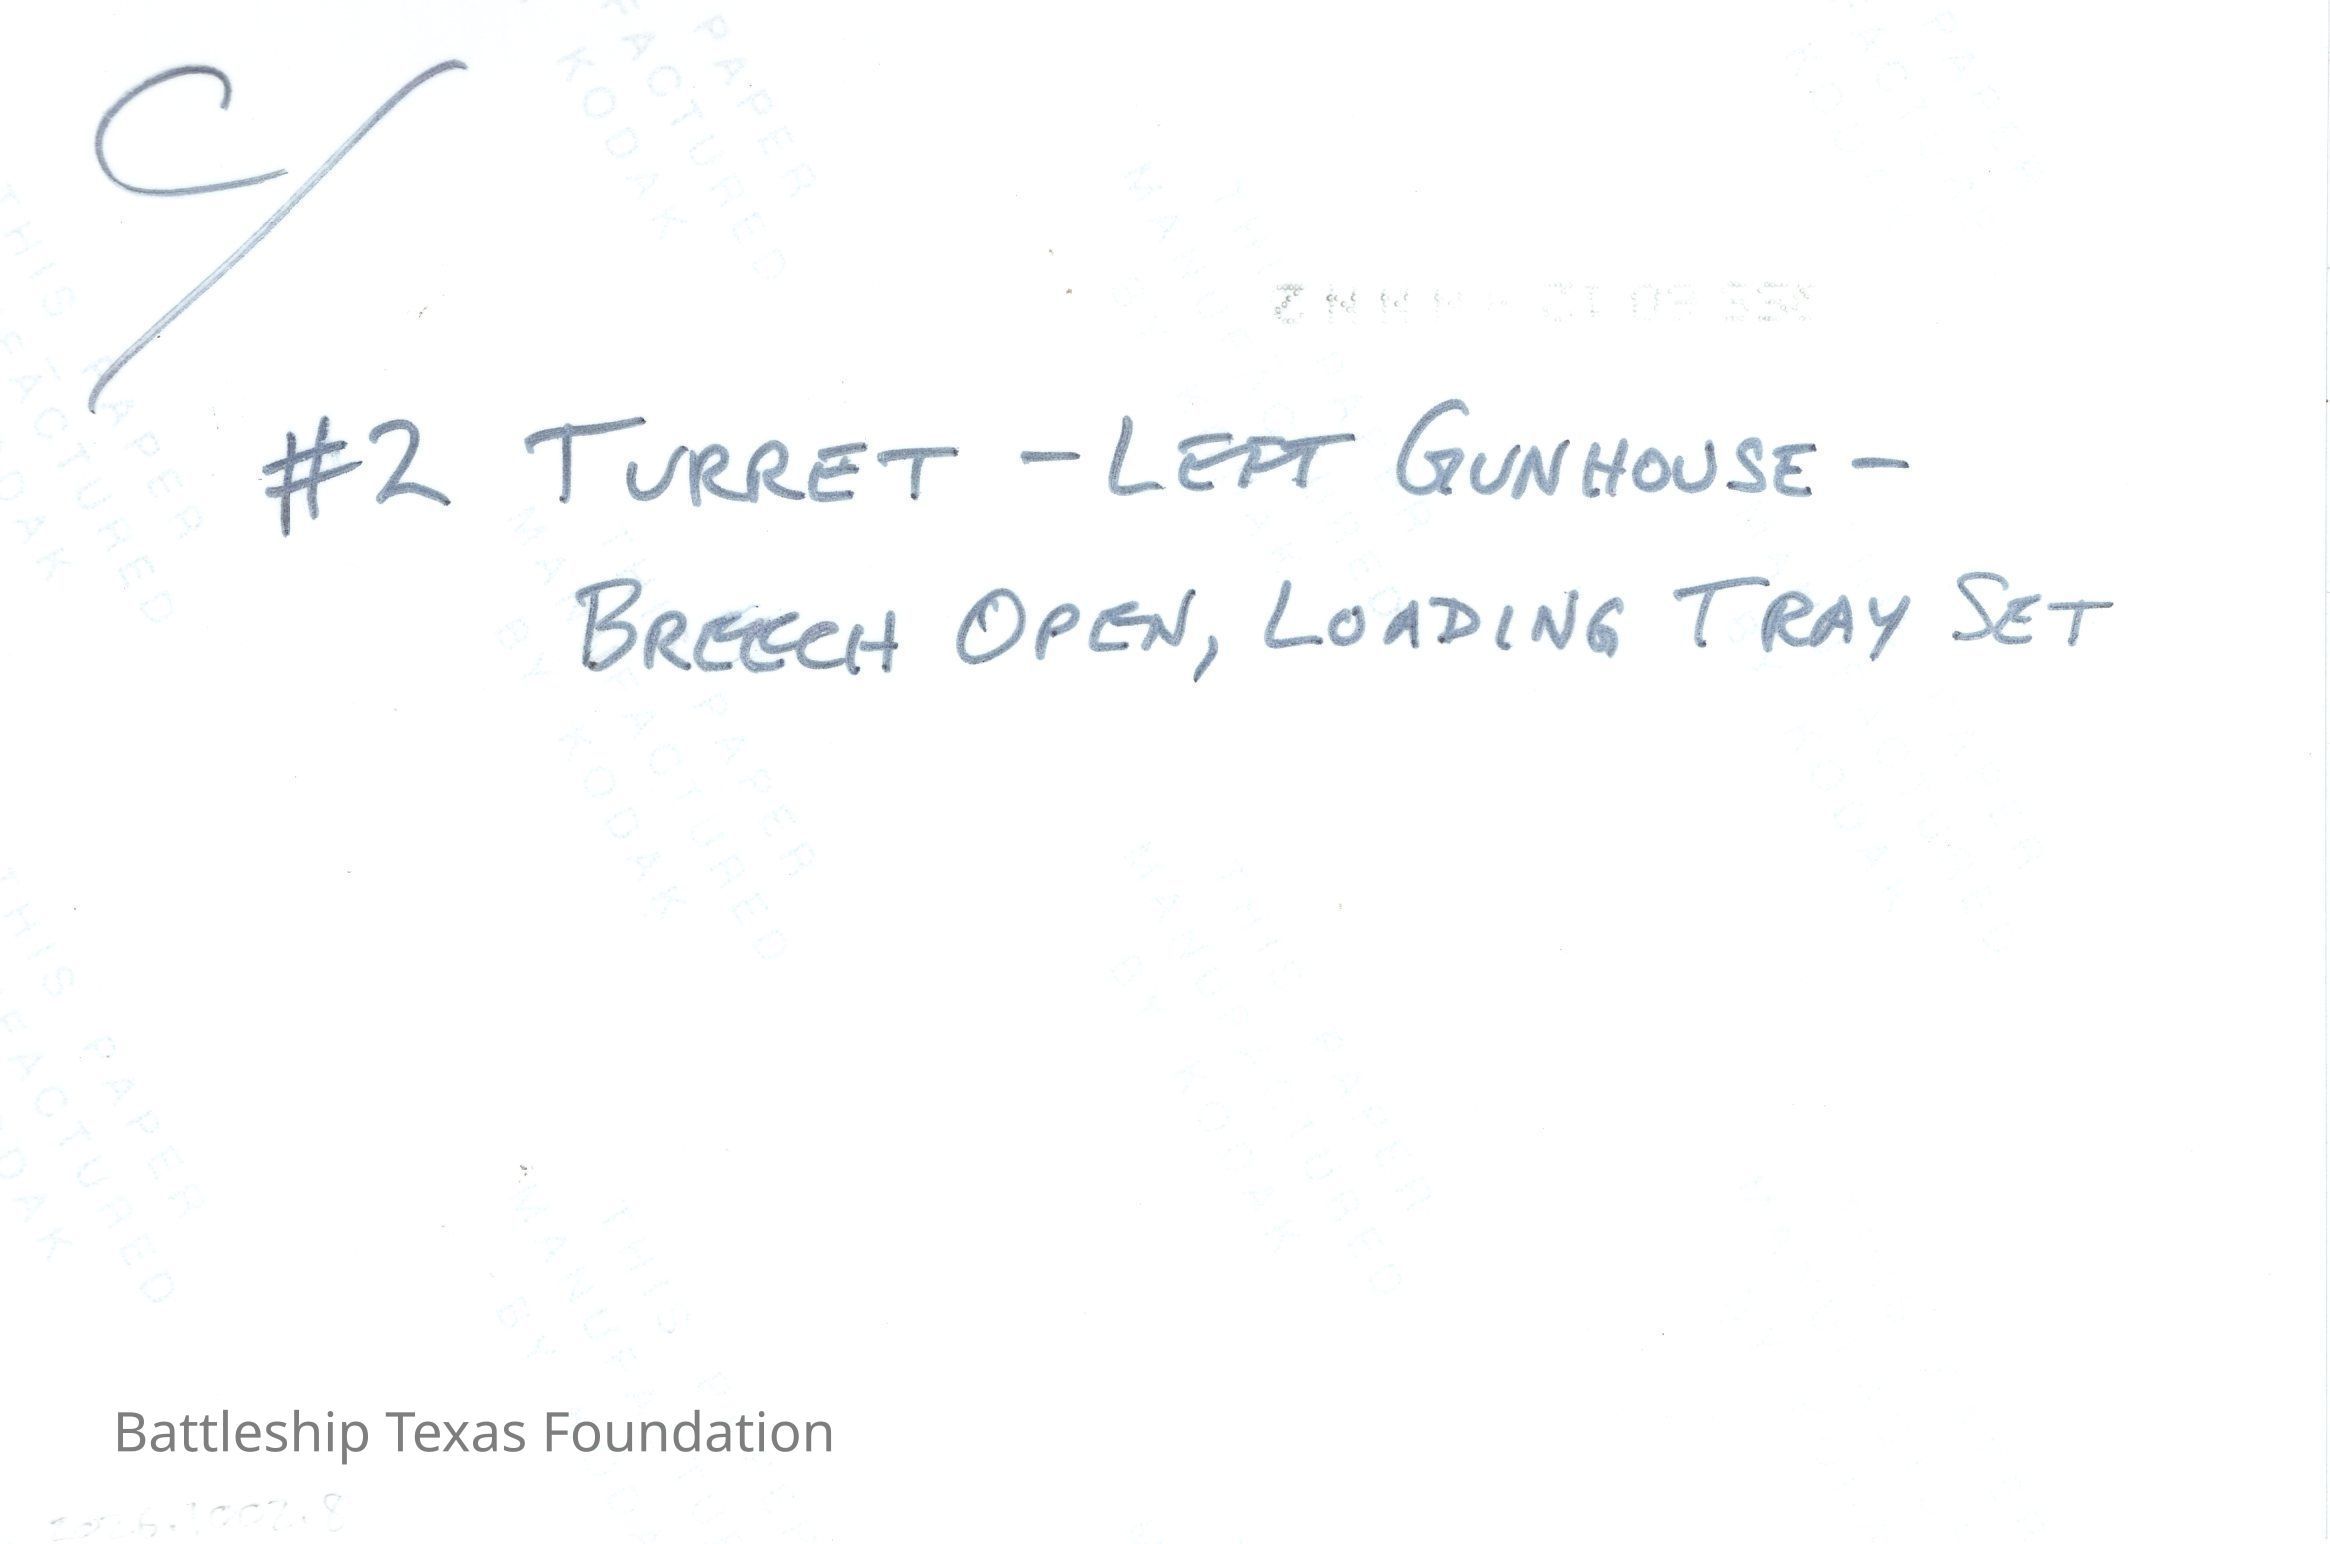 C/
#2 TURRET - LEFT GUNHOUSE -
BREECH OPEN, LOADING TRAY SET
THIS PAPER
MANUFACTURED
BY KODAK
Battleship Texas Foundation